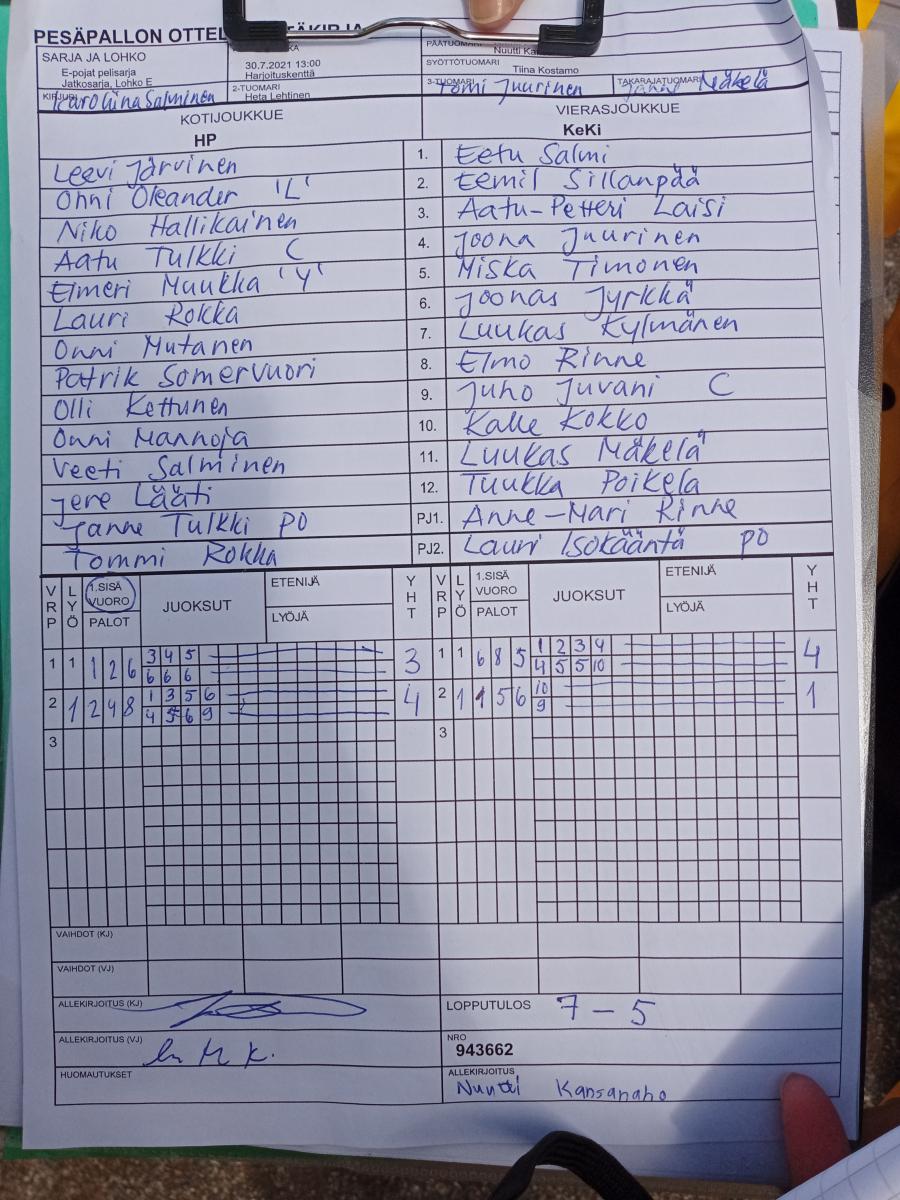 PESÄPALLON
SARJA JA LOHKO
E-pojat pelisarja
Jatkosarja, Lohko E
30.7.2021 13:00
Harjoituskenttä
PÄÄTUOMARI
Nuutti
SYÖTTÖTUOMARI
Tiina Kostamo
KIRJURI
Karoliina Salminen
2-TUOMARI
Heta Lehtinen
3-TUOMARI
Tomi Juurinen
TAKARAJATUOMARI
Mäkelä
KOTIJOUKKUE
HP
VIERASJOUKKUE
KeKi
Leevi Järvinen 1. Eetu Salmi
Onni Oleander 'L' 2. Eemil Sillanpää
Niko Hallikainen 3. Aatu-Petteri Laisi
Aatu Tulkki C 4. Joona Juurinen
Elmeri Muukka 'Y' 5. Miska Timonen
Lauri Rokka 6. Joonas Jyrkkä
Onni Mutanen 7. Luukas Kylmänen
Patrik Somervuori 8. Elmo Rinne
Olli Kettunen 9. Juho Juvani C
Onni Mannoja 10. Kalle Kokko
Veeti Salminen 11. Luukas Mäkelä
Jere Lääti 12. Tuukka Poikela
Janne Tulkki PO PJ1. Anne-Mari Rinne
Tommi Rokka PJ2. Lauri Isokääntä PO
VRP LYÖ 1.SISÄ VUORO PALOT JUOKSUT ETENIJÄ LYÖJÄ YHT VRP LYÖ 1.SISÄ VUORO PALOT JUOKSUT ETENIJÄ LYÖJÄ YHT
1 1 1 2 6 3 4 5 3 1 1 6 8 5 1 2 3 4 4
6 6 6 4 5 5 10
2 1 2 4 8 1 3 5 6 4 2 1 1 5 6 10 1
4 5 6 9 9
3 3
VAIHDOT (KJ)
VAIHDOT (VJ)
ALLEKIRJOITUS (KJ)
LOPPUTULOS 7 - 5
ALLEKIRJOITUS (VJ)
NRO
943662
HUOMAUTUKSET
ALLEKIRJOITUS
Nuutti Kansanaho